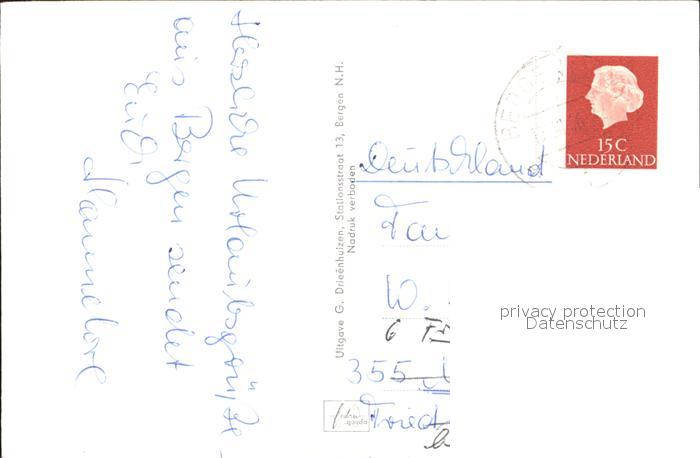 Herzliche Urlaubsgrüße
aus Bergen sendet
Euch
Hannelore
Uitgave G. Drieënhuizen, Stationsstraat 13, Bergen N.H.
Nadruk verboden
BERGEN
15 C
NEDERLAND
Deutschland
Fam
W.
6
355
Fried
privacy protection
Datenschutz